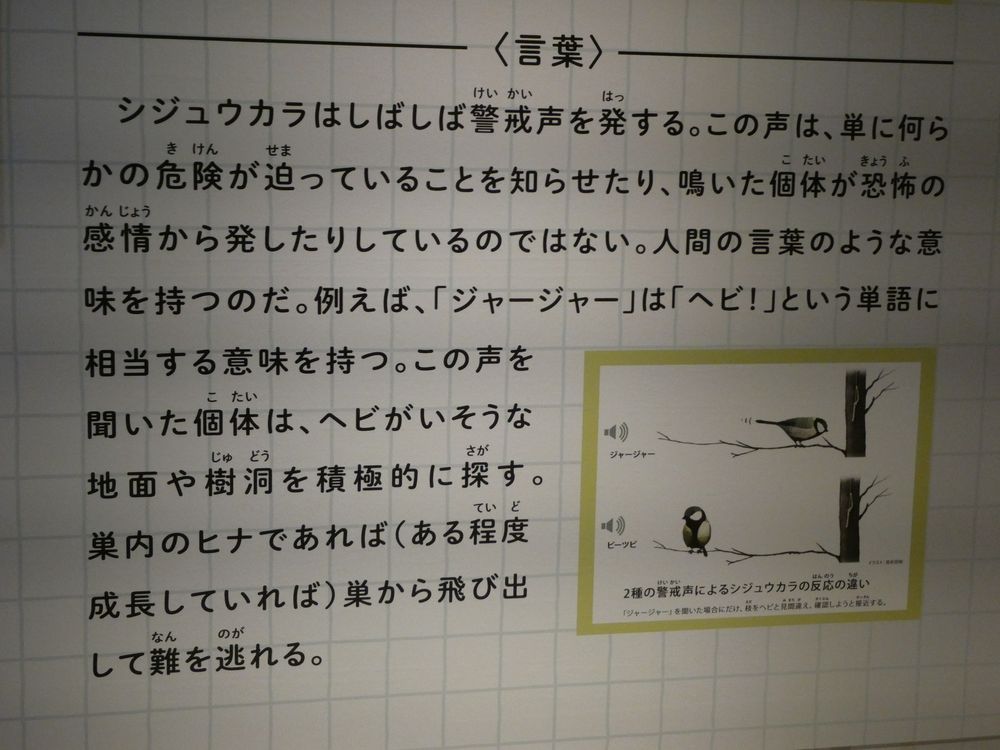 〈言葉〉
シジュウカラはしばしば警戒声を発する。この声は、単に何ら
かの危険が迫っていることを知らせたり、鳴いた個体が恐怖の
感情から発したりしているのではない。人間の言葉のような意
味を持つのだ。例えば、「ジャージャー」は「ヘビ!」という単語に
相当する意味を持つ。この声を
聞いた個体は、ヘビがいそうな
地面や樹洞を積極的に探す。
巣内のヒナであれば(ある程度
成長していれば)巣から飛び出
して難を逃れる。
ジャージャー
ピーツピ
2種の警戒声によるシジュウカラの反応の違い
「ジャージャー」を聞いた場合にだけ、枝をヘビと見間違え、確認しようと接近する。